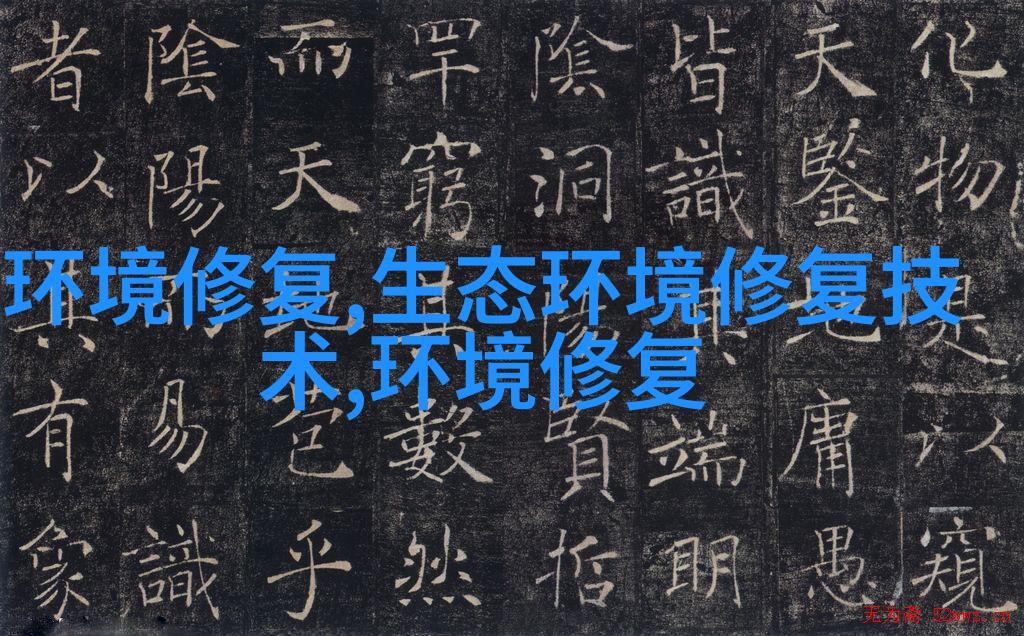 环境修复,生态环境修复技
术,环境修复
化物是以窺
天鑒地庸愚
皆識其端明
陰洞陽賢哲
罕窮其數然
而天地苞乎
陰陽而易識
者以其有象
无为斋 52wwz.cn